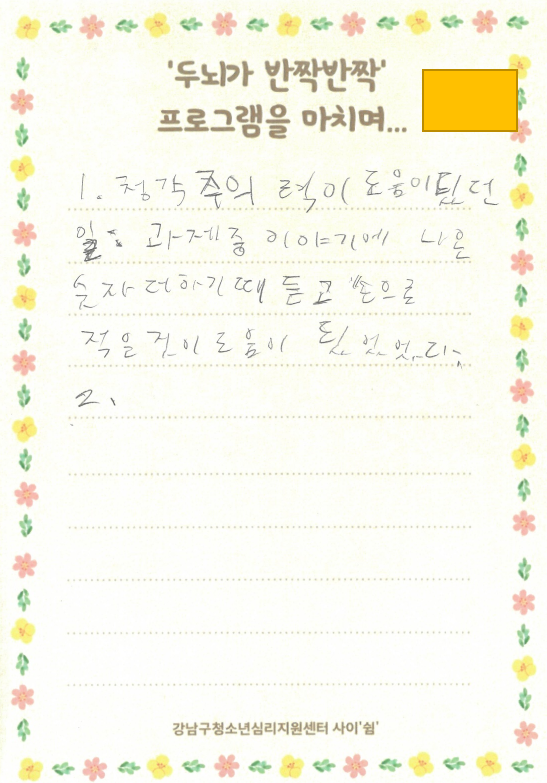 '두뇌가 반짝반짝'
프로그램을 마치며...
1. 청각 주의 력이 도움이 됬던
일: 과제중 이야기에 나온
숫자 더하기 때 듣고 손으로
적은 것이 도움이 됬었었다.
2.
강남구청소년심리지원센터 사이'쉼'